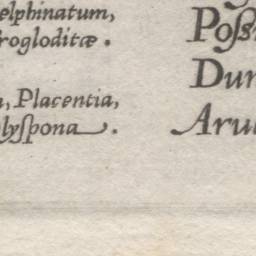 elphinatum,
rogloditæ.
, Placentia,
lyſpona.
Poſſ
Dur
Arul